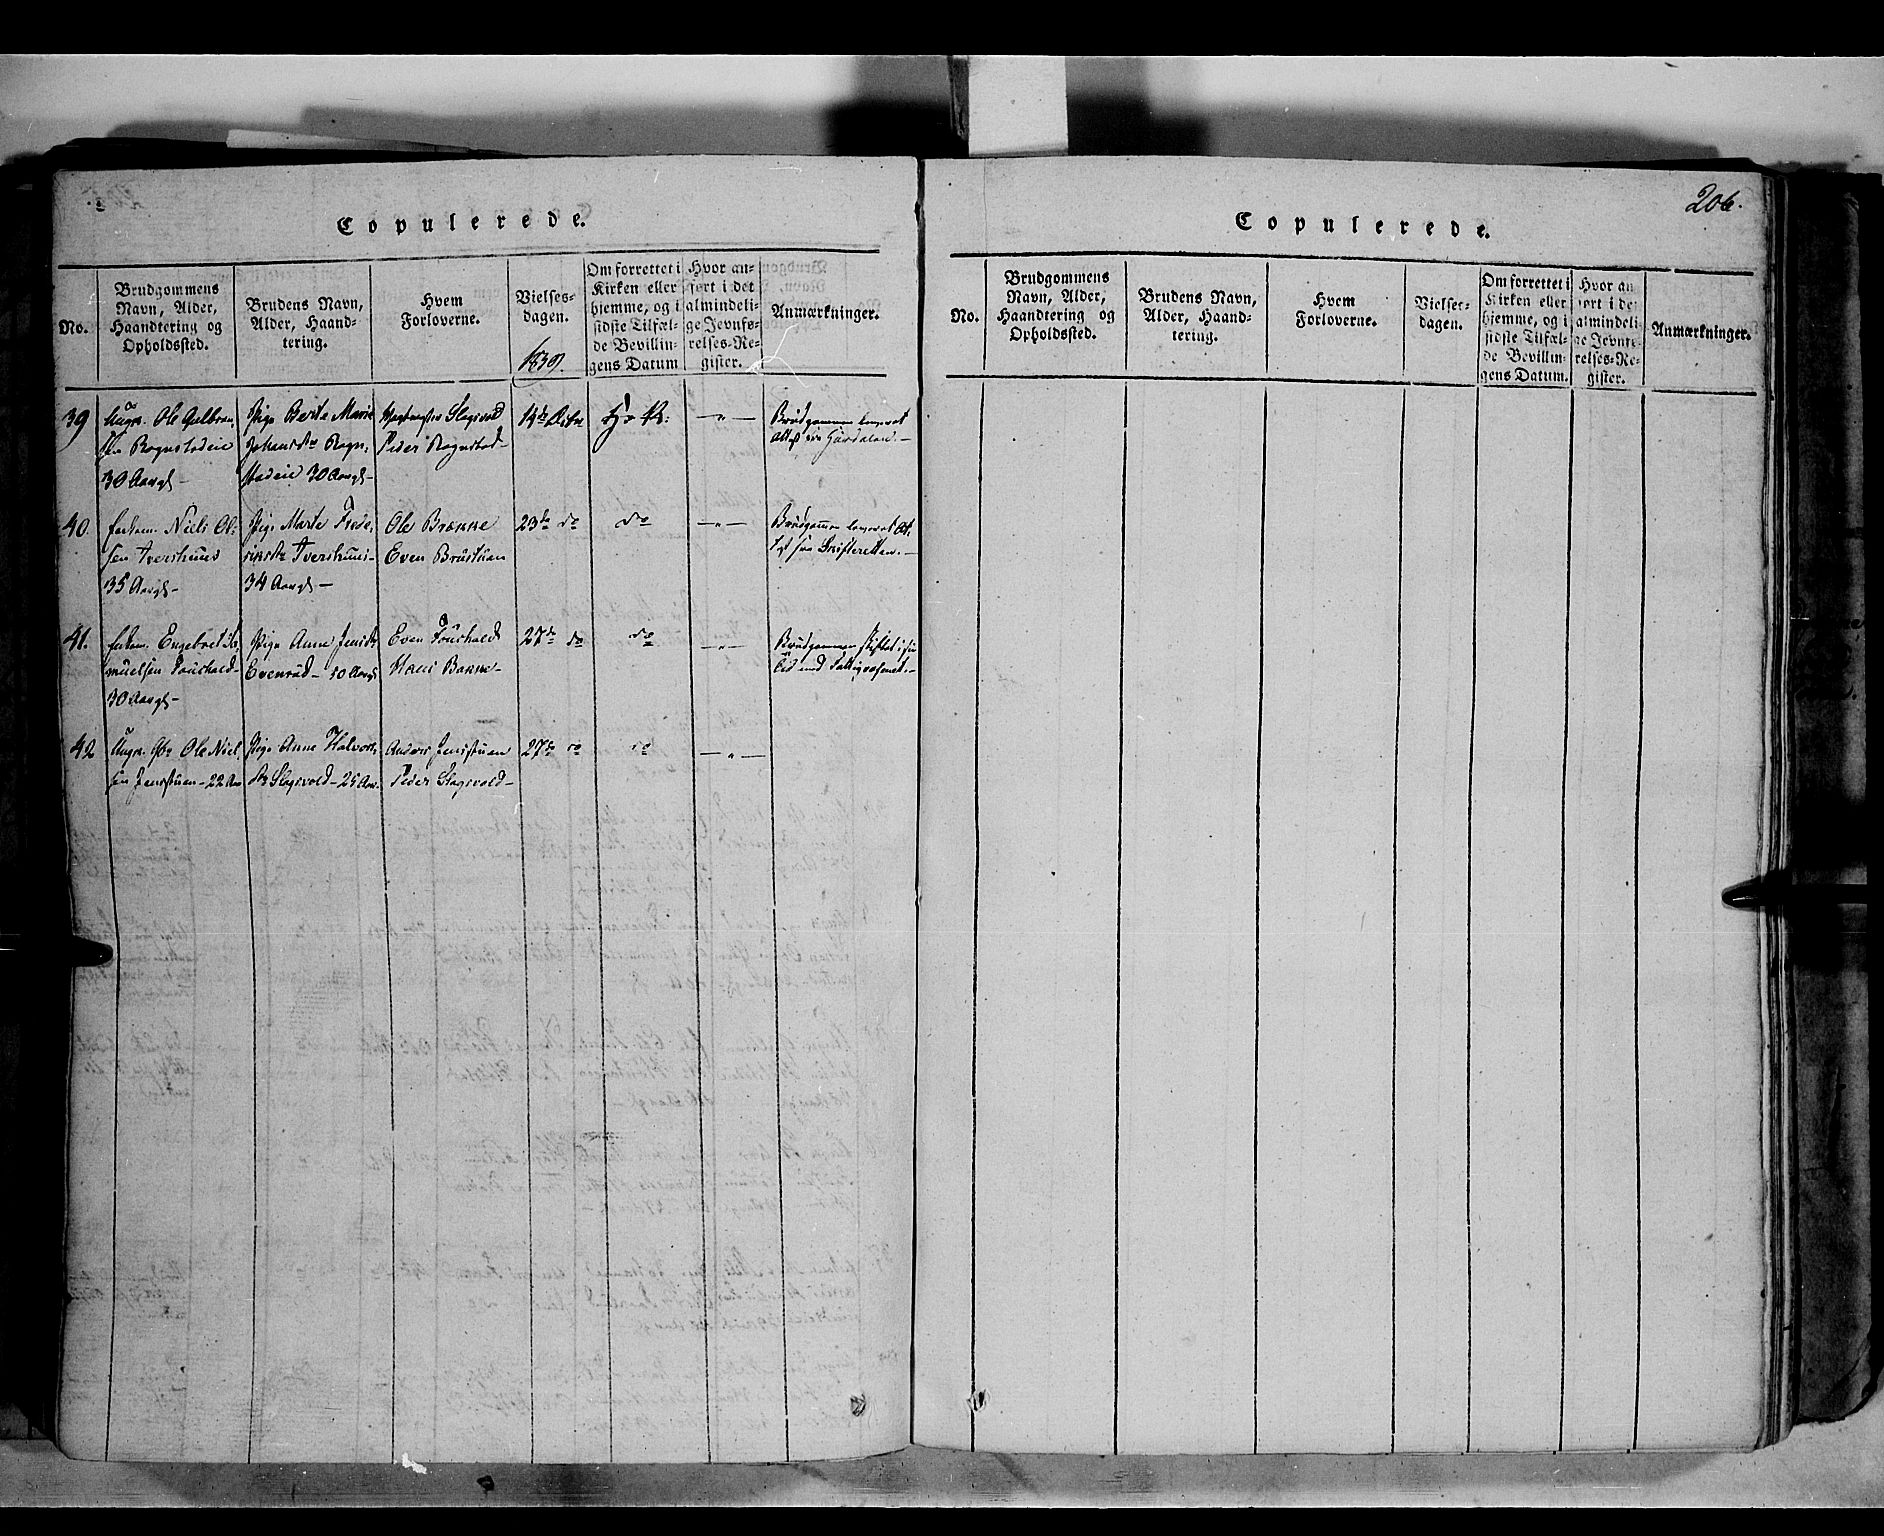 206.
Copulerede.
No.
Brudgommens
Navn, Alder,
Haandtering og
Opholdssted.
Brudens Navn,
Alder, Haand-
tering.
Hvem
Forloverne.
Vielses-
dagen.
1839.
Om forrettet i
Kirken eller
hjemme, og i
sidste Tilfæl-
de Bevillin-
gens Datum
Hvor an-
ført i det
almindeli-
ge Jevnfø-
relses-Re-
gister.
Anmærkninger.
39
Ungk. Ole Gulbran
sen Rognstadeie
30 Aargl -
Pige Berte Marie
Johansdr Rogn-
stadeie 30 Aargl -
Slagsvold
Peder Rognstad -
14de
H. K.
- " -
Brudgommen
40.
Niels Ol-
sen Tvershuus
35 Aargl -
Pige Marte Frede-
riksdr Tvershuus -
34 Aargl -
Ole Brænne
Even Brustuen
23de do
do
- " -
Brudgommen leveret At-
test fra Skifteretten. -
41.
Engebret
muelsen
30 Aargl -
Pige Anne Jensdr
Evenrud - 30 Aargl
Even
Hans Banne -
27de do
do
- " -
Brudgommen skiftet
med Fattigvæsenet. -
42
Ungk. Gbr Ole Niel
sen Jensstuen - 22 Aar
Pige Anne Halvors
dr Slagsvold - 25 Aar.
Anders Jensstuen
Peder Slagsvold -
27de do
do
- " -
Copulerede.
No.
Brudgommens
Navn, Alder,
Haandtering og
Opholdssted.
Brudens Navn,
Alder, Haand-
tering.
Hvem
Forloverne.
Vielses-
dagen.
Om forrettet i
Kirken eller
hjemme, og i
sidste Tilfæl-
de Bevillin-
gens Datum.
Hvor an
ført i de
almindeli-
ge Jevnfø-
relses-Re-
gister.
Anmærkninger.